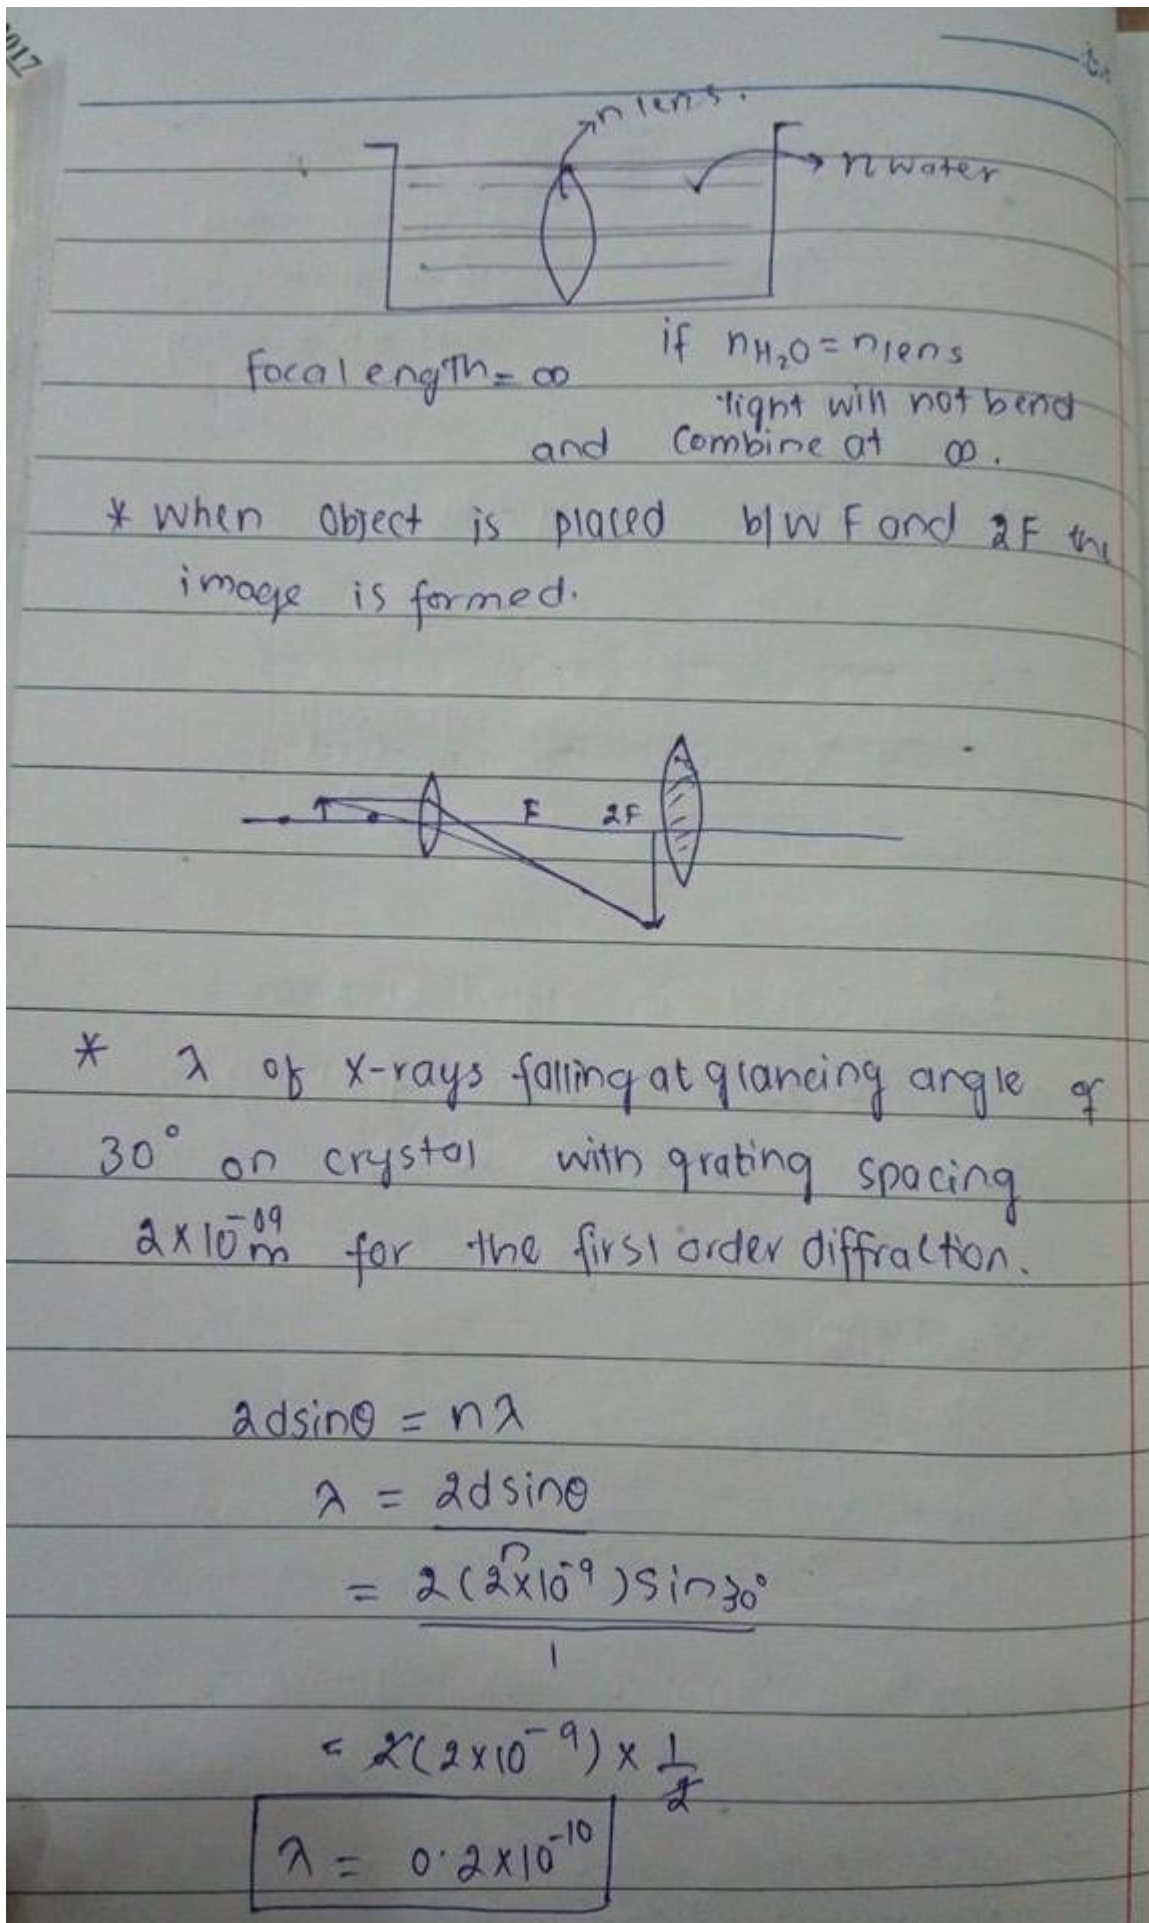 2017
n lens.
n water
if nH₂O = nlens
focal ength = ∞
light will not bend
and combine at ∞.
* When object is placed b/w F and 2F the
image is formed.
F 2F
* λ of x-rays falling at glancing angle of
30° on crystal with grating spacing
2×10⁻⁰⁹m for the first order diffraction.
2dsinθ = nλ
λ = 2dsinθ
n
= 2(2×10⁻⁹)sin30°
1
= 2(2×10⁻⁹) × 1
2
λ = 0.2×10⁻¹⁰